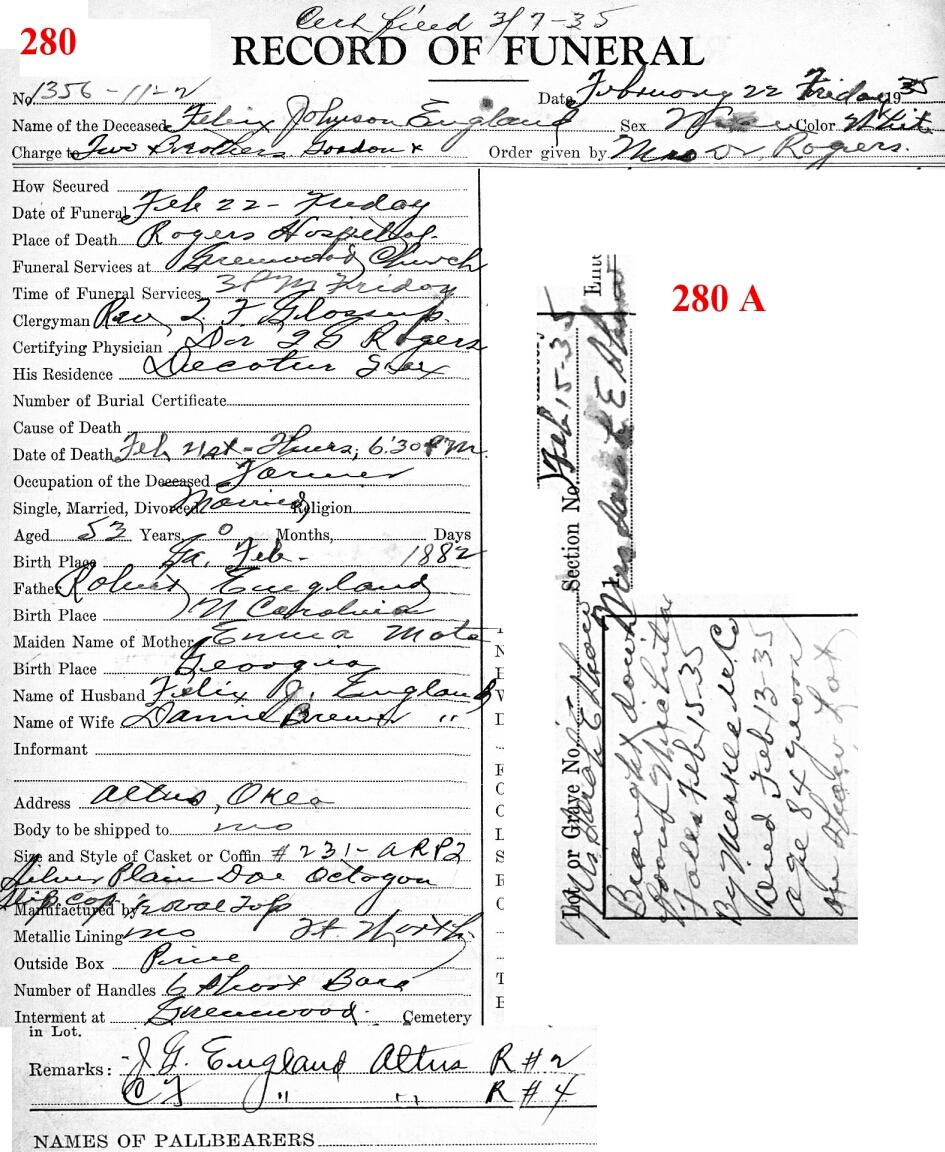 280
Certified 3/7-35
RECORD OF FUNERAL
No. 1356-11-2 Date February 22 Friday 1935
Name of the Deceased Felix Johnson England Sex Color White
Charge to Two Brothers Gordon & Order given by Mrs Dr. Rogers.
How Secured
Date of Funeral Feb 22 - Friday
Place of Death Rogers Hospital.
Funeral Services at Greenwood Church
Time of Funeral Services 3 PM Friday
Clergyman Rev
Certifying Physician Dr Rogers
His Residence Decatur Tex
Number of Burial Certificate
Cause of Death
Date of Death Feb 21st - Thurs, 6:30 PM.
Occupation of the Deceased Farmer
Single, Married, Divorced Married, Religion
Aged 53 Years, 0 Months, Days
Birth Place Ga. Feb - 1882
Father Robert England
Birth Place N Carolina
Maiden Name of Mother Emma
Birth Place Georgia
Name of Husband Felix J. England
Name of Wife Brewer "
Informant
Address Altus, Okla
Body to be shipped to no
Size and Style of Casket or Coffin # 231-
Silver Plain Doe Octagon
Manufactured by
Metallic Lining no Ft. Worth
Outside Box Pine
Number of Handles 6 Short Bars
Interment at Greenwood. Cemetery
in Lot.
Remarks: J.G. England Altus R # 2
" " R # 4
NAMES OF PALLBEARERS
280 A
Lot or Grave No. Section No. Feb 15-35
Mrs Sarah E
Brought down
from Wichita
Falls Feb 15-35
By Merkle M. Co
Died Feb 13-35
age 84 years
on Lot